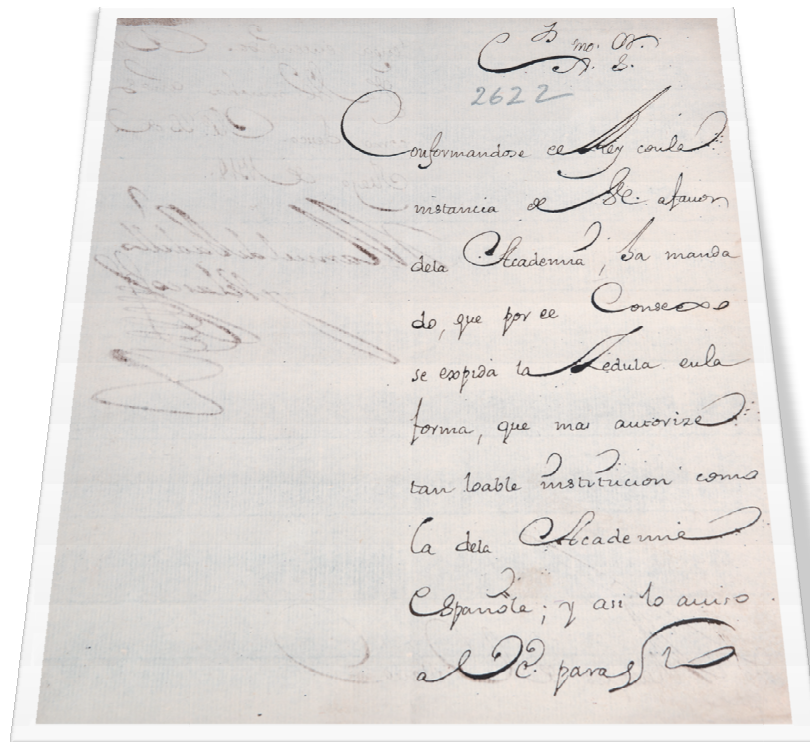 2622
Conformandose el Rey con la
instancia de VE. a fauor
dela Academia, ha manda
do, que por el Consexo
se expida la Zedula enla
forma, que mas autorize
tan loable institucion como
la dela Academia
Española; y asi lo auiso
a VE. para q̃